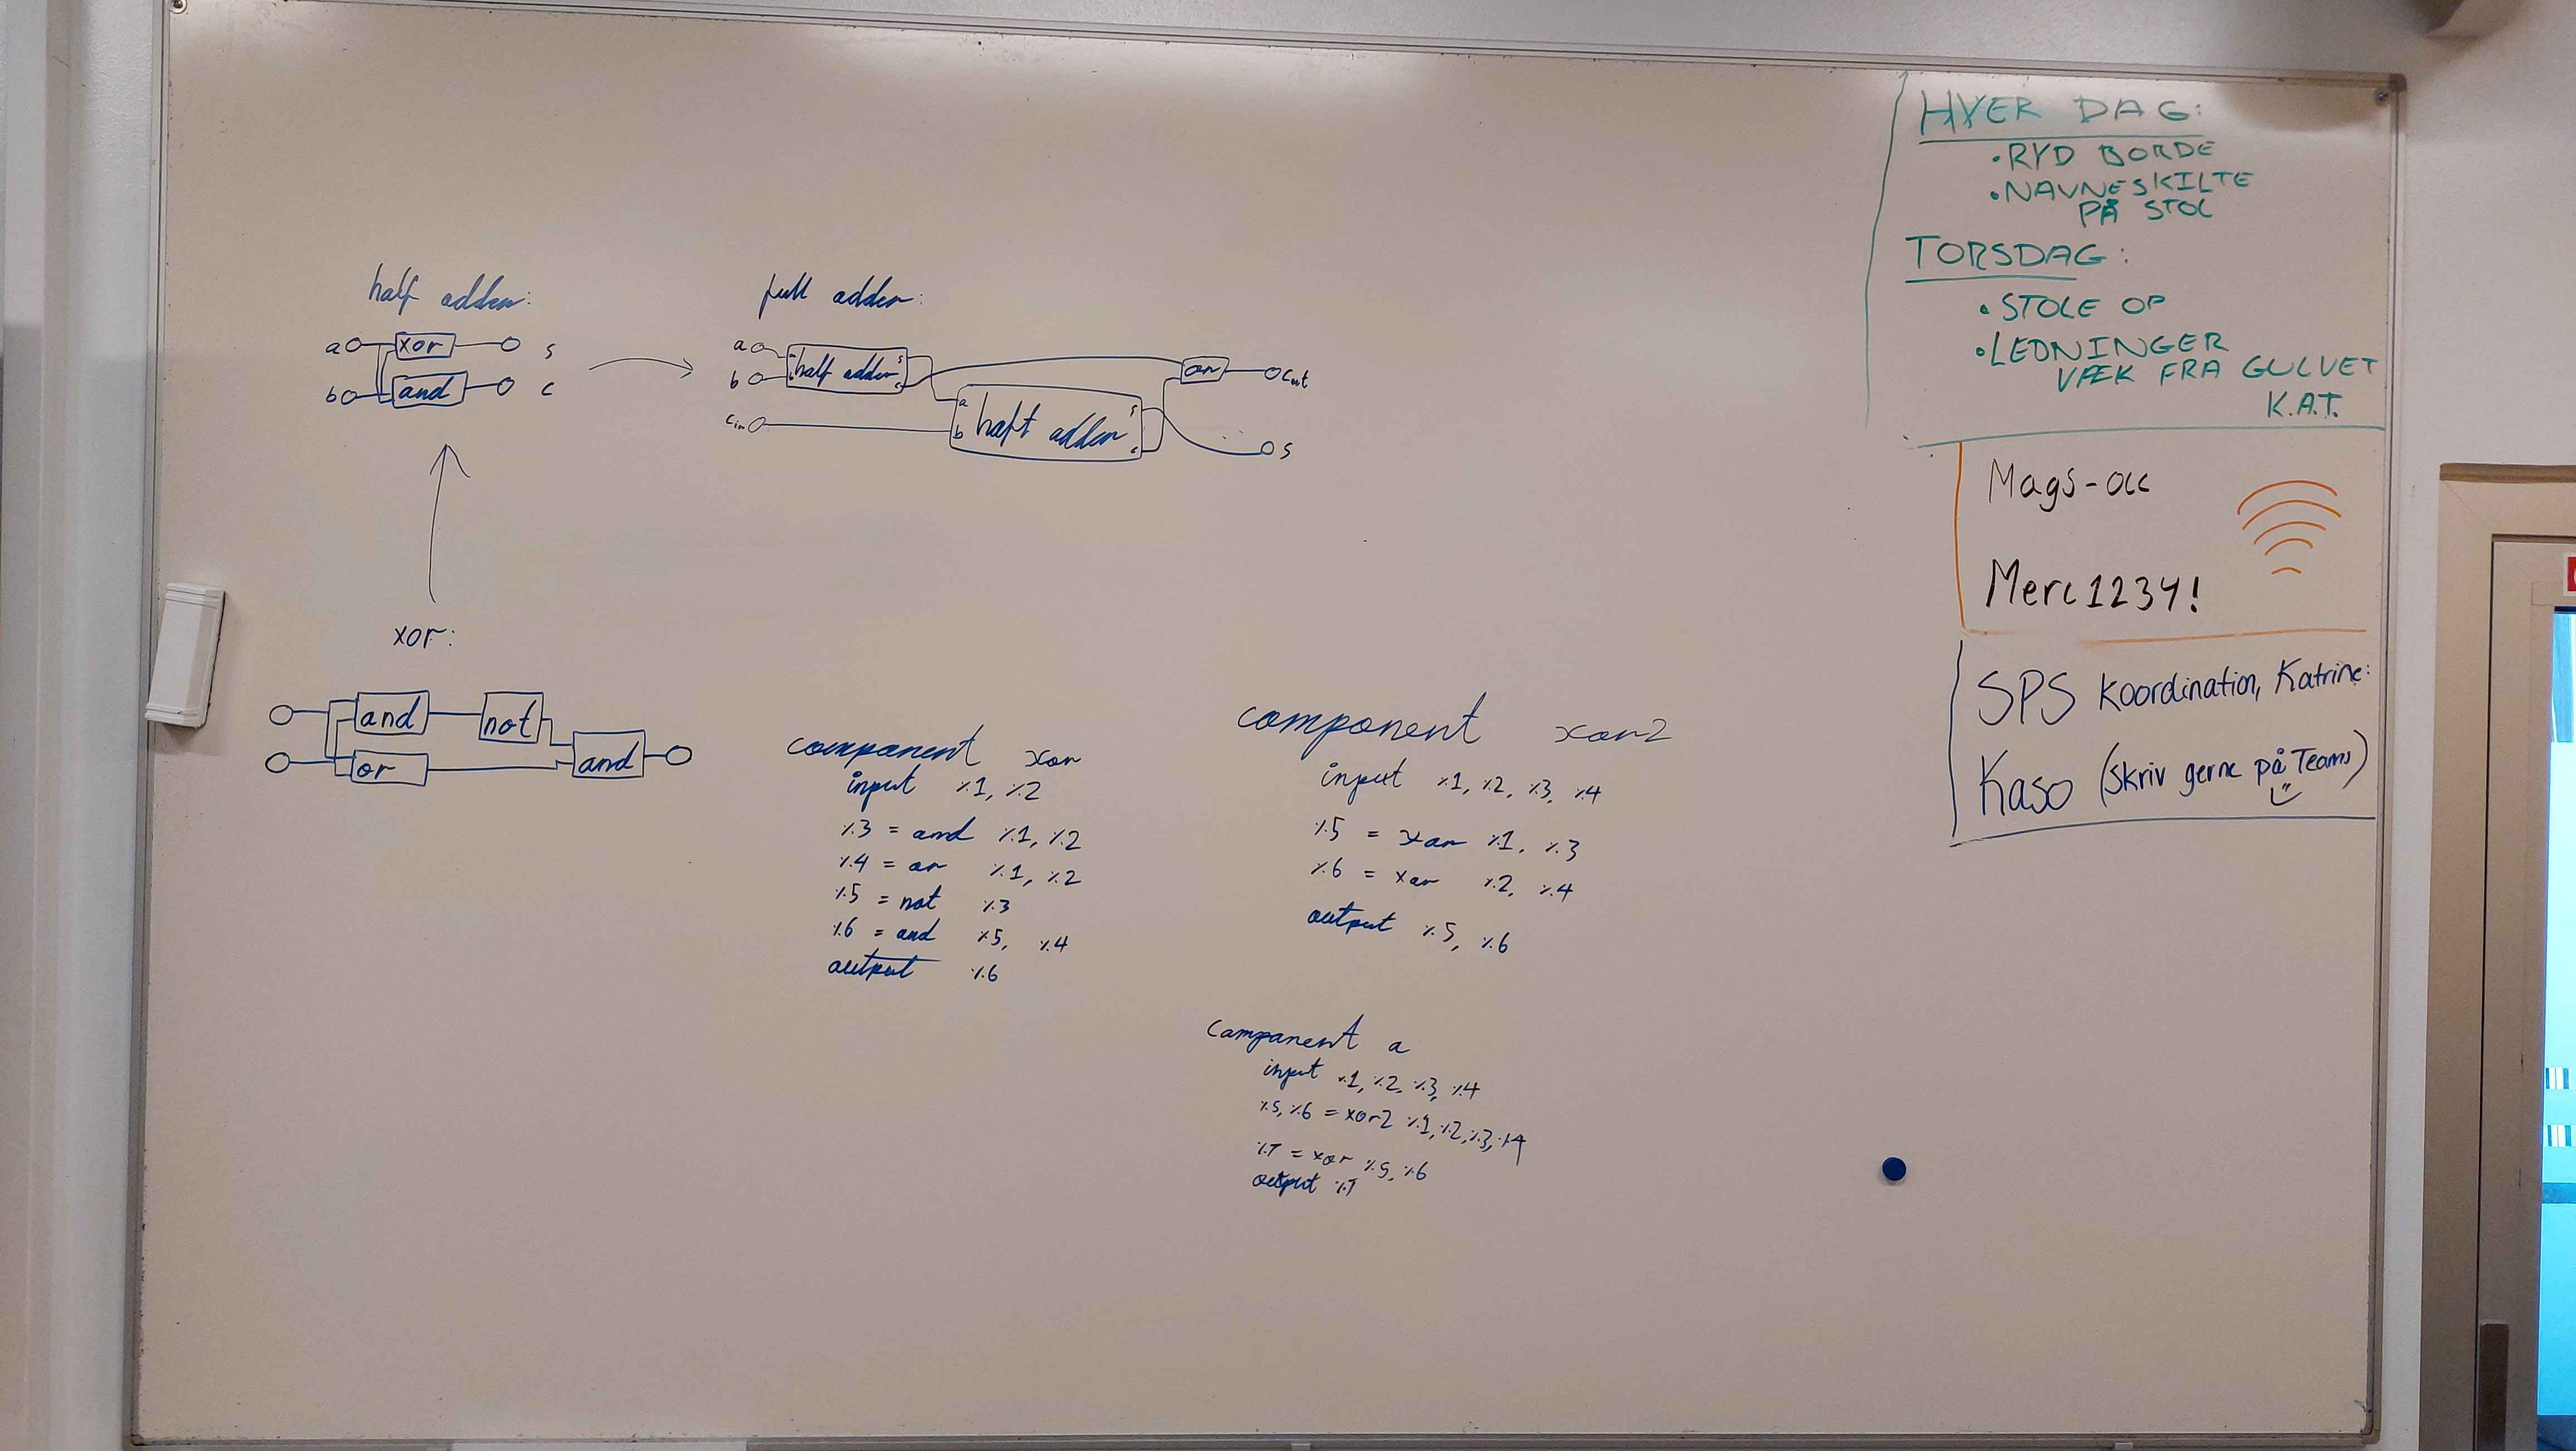 half adder:
a xor s
b and c
full adder:
a
b
a half adder s
b c
cin
a half adder s
b c
or cout
s
xor:
and not
or and
component xor
input %1, %2
%3 = and %1, %2
%4 = or %1, %2
%5 = not %3
%6 = and %5, %4
output %6
component xor2
input %1, %2, %3, %4
%5 = xor %1, %3
%6 = xor %2, %4
output %5, %6
component a
input %1, %2, %3, %4
%5, %6 = xor2 %1, %2, %3, %4
%7 = xor %5, %6
output %7
HVER DAG:
• RYD BORDE
• NAVNESKILTE
PÅ STOL
TORSDAG:
• STOLE OP
• LEDNINGER
VÆK FRA GULVET
K.A.T.
Merc1234!
SPS Koordination, Katrine:
Kaso (skriv gerne på Teams)